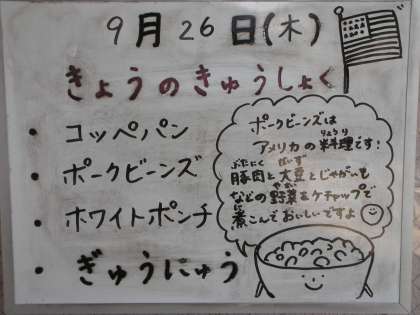 9月26日(木)
きょうのきゅうしょく
・コッペパン
・ポークビーンズ
・ホワイトポンチ
・ぎゅうにゅう
ポークビーンズは
アメリカの料理です!
りょうり
ぶたにく だいず
豚肉と大豆とじゃがいも
やさい
などの野菜をケチャップで
に
煮こんでおいしいですよ